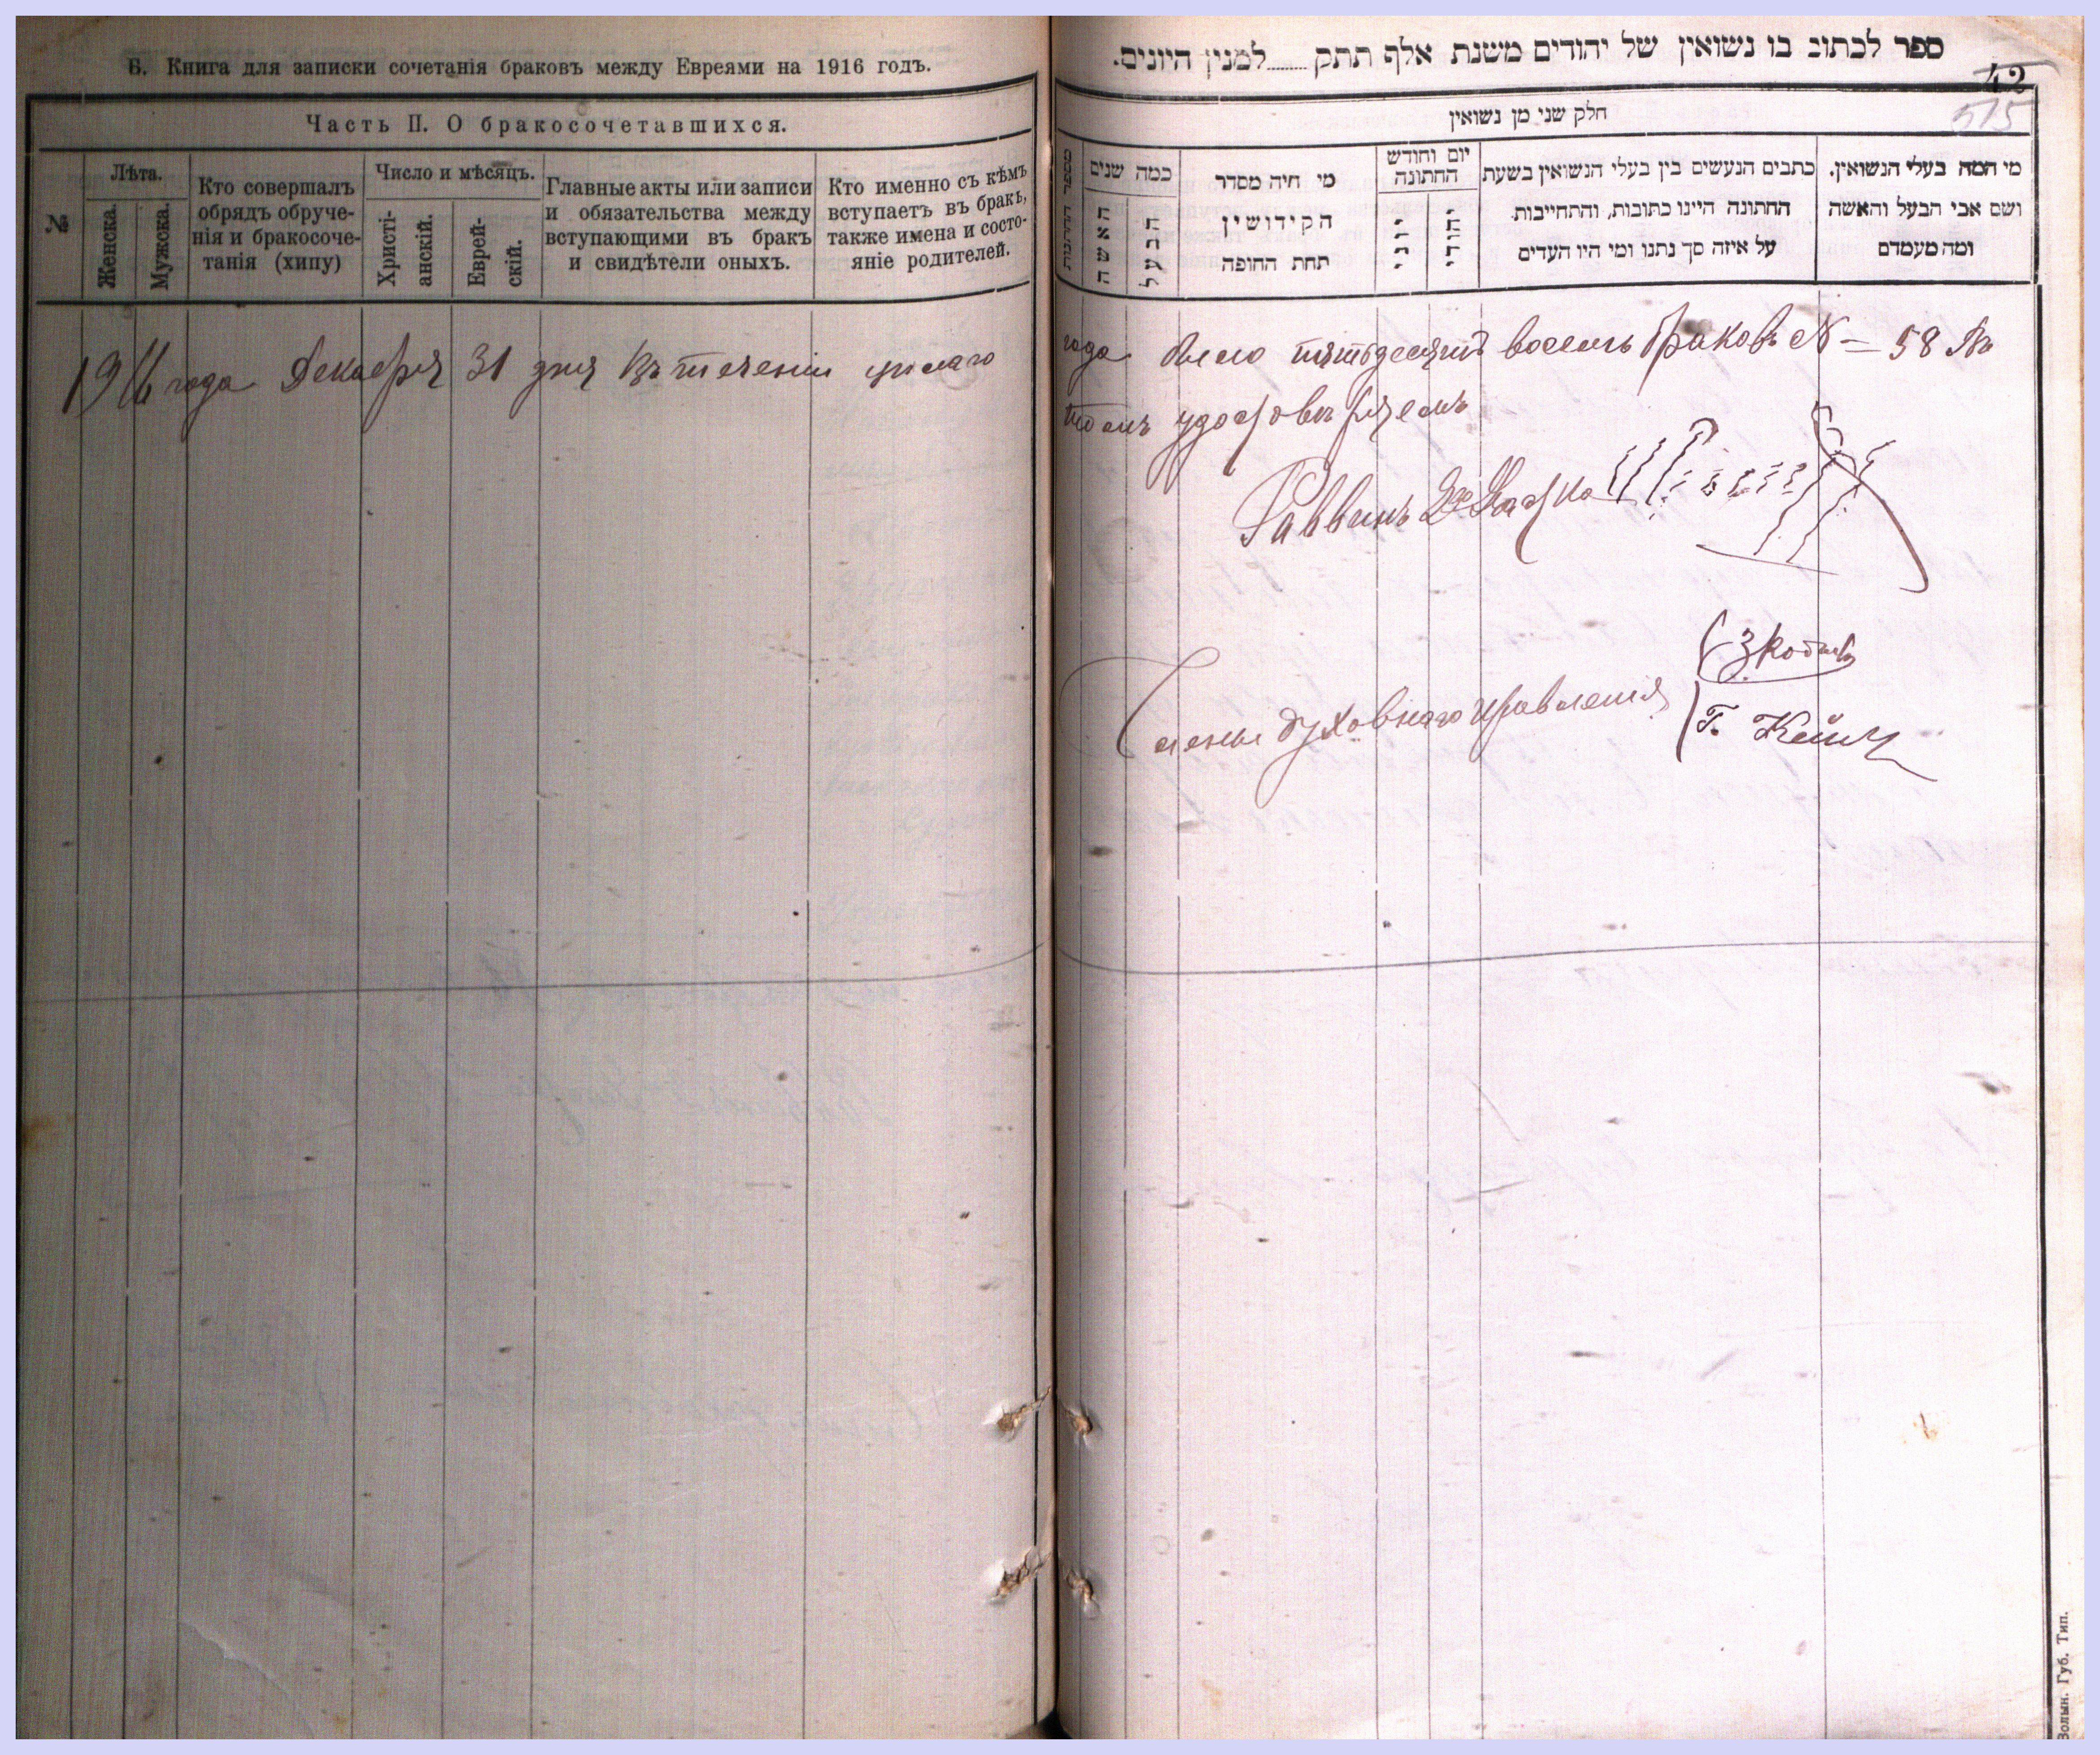 Б. Книга для записки сочетанія браковъ между Евреями на 1916 годъ.
Часть II. О бракосочетавшихся.
№
Лѣта.
Женска.
Мужска.
Кто совершалъ
обрядъ обруче-
нія и бракосоче-
танія (хипу)
Число и мѣсяцъ.
Христі-
анскій.
Еврей-
скій.
Главные акты или записи
и обязательства между
вступающими въ бракъ
и свидѣтели оныхъ.
Кто именно съ кѣмъ
вступаетъ въ бракъ,
также имена и состо-
яніе родителей.
1916 года Декабря 31 дня Въ теченіи цѣлаго
ספר לכתוב בו נשואין של יהודים משנת אלף תתק......למנין היונים.
42
515
חלק שני מן נשואין
מספר החתונות
כמה שנים
האשה
הבעל
מי היה מסדר
הקידושין
תחת החופה
יום וחודש
החתונה
יוני
יהודי
כתבים הנעשים בין בעלי הנשואין בשעת
החתונה היינו כתובות, והתחייבות
על איזה סך נתנו ומי היו העדים
מי המה בעלי הנשואין.
ושם אבי הבעל והאשה
ומה מעמדם
года было пятьдесятъ восемь браковъ № – 58 Въ
томъ удостовѣряемъ
Раввинъ
Члены духовнаго правленія
Волын. Губ. Тип.